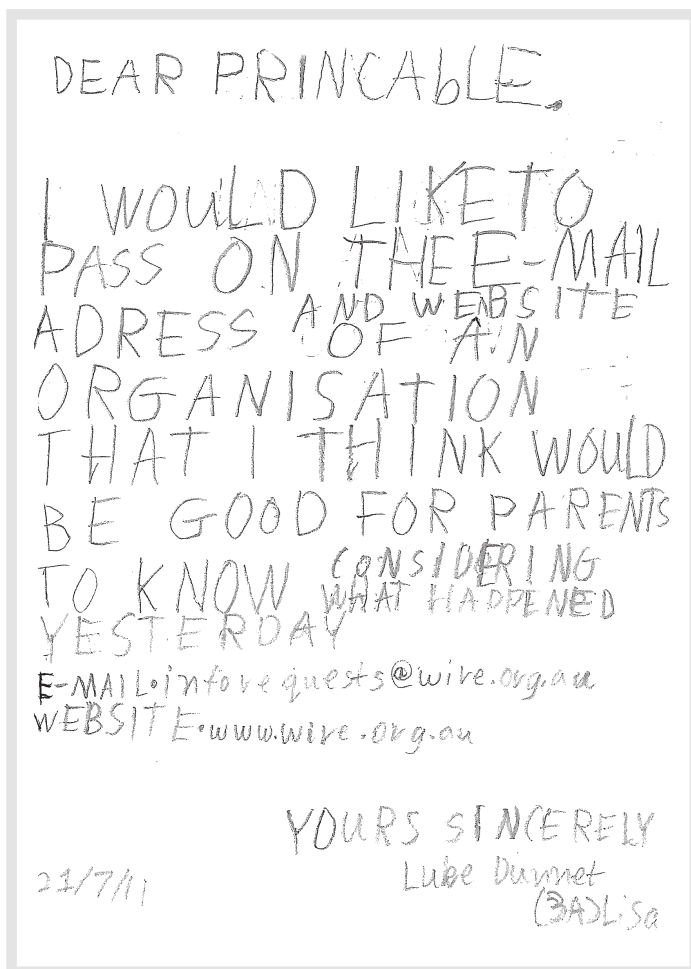 DEAR PRINCABLE.
I WOULD LIKE TO
PASS ON THE E-MAIL
AND WEBSITE
ADRESS OF AN
ORGANISATION
THAT I THINK WOULD
BE GOOD FOR PARENTS
TO KNOW CONSIDERING
WHAT HAPPENED
YESTERDAY
E-MAIL.inforequests@wire.org.au
WEBSITE.www.wire.org.au
YOURS SINCERELY
Luke
21/7/11
(3A)Lisa